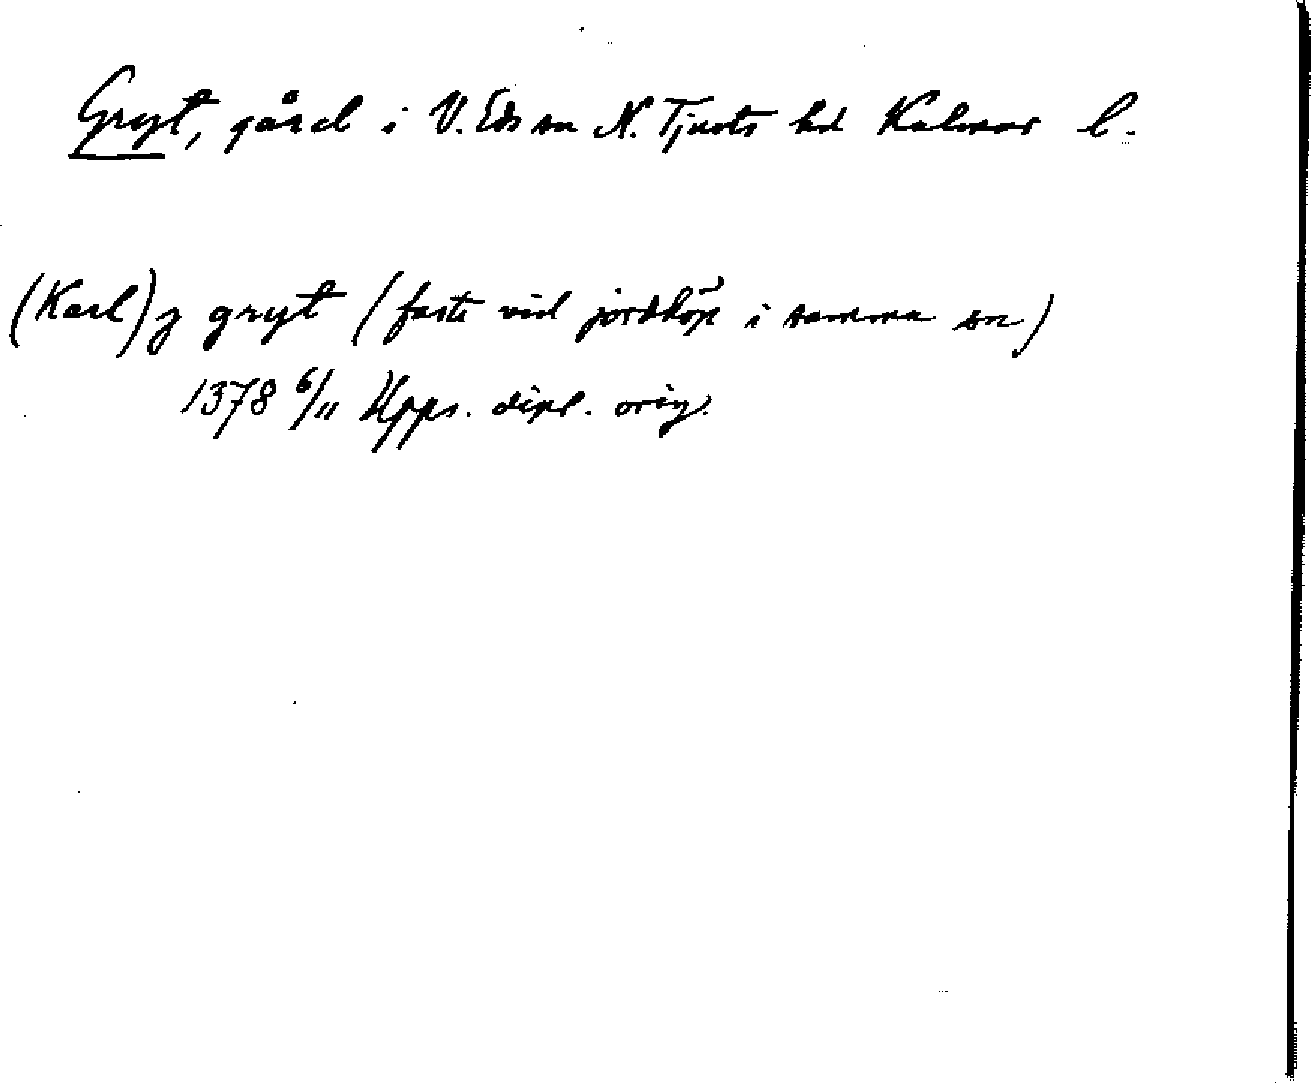 Gryt, gård i V. Eds sn N. Tjusts hd Kalmar l.
(Karl) j gryt (faste vid jordköp i samma sn)
1378 6/11 Upps. dipl. orig.